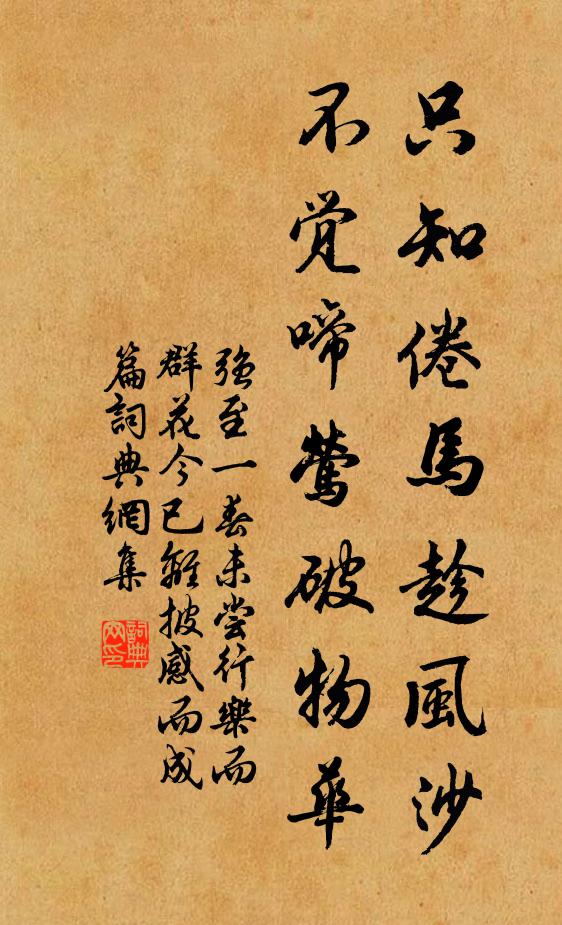 只知倦馬趁風沙
不覚啼鶯破物華
強至一春未嘗行樂而
群花今已離披感而成
篇詞典網集
詞典網印